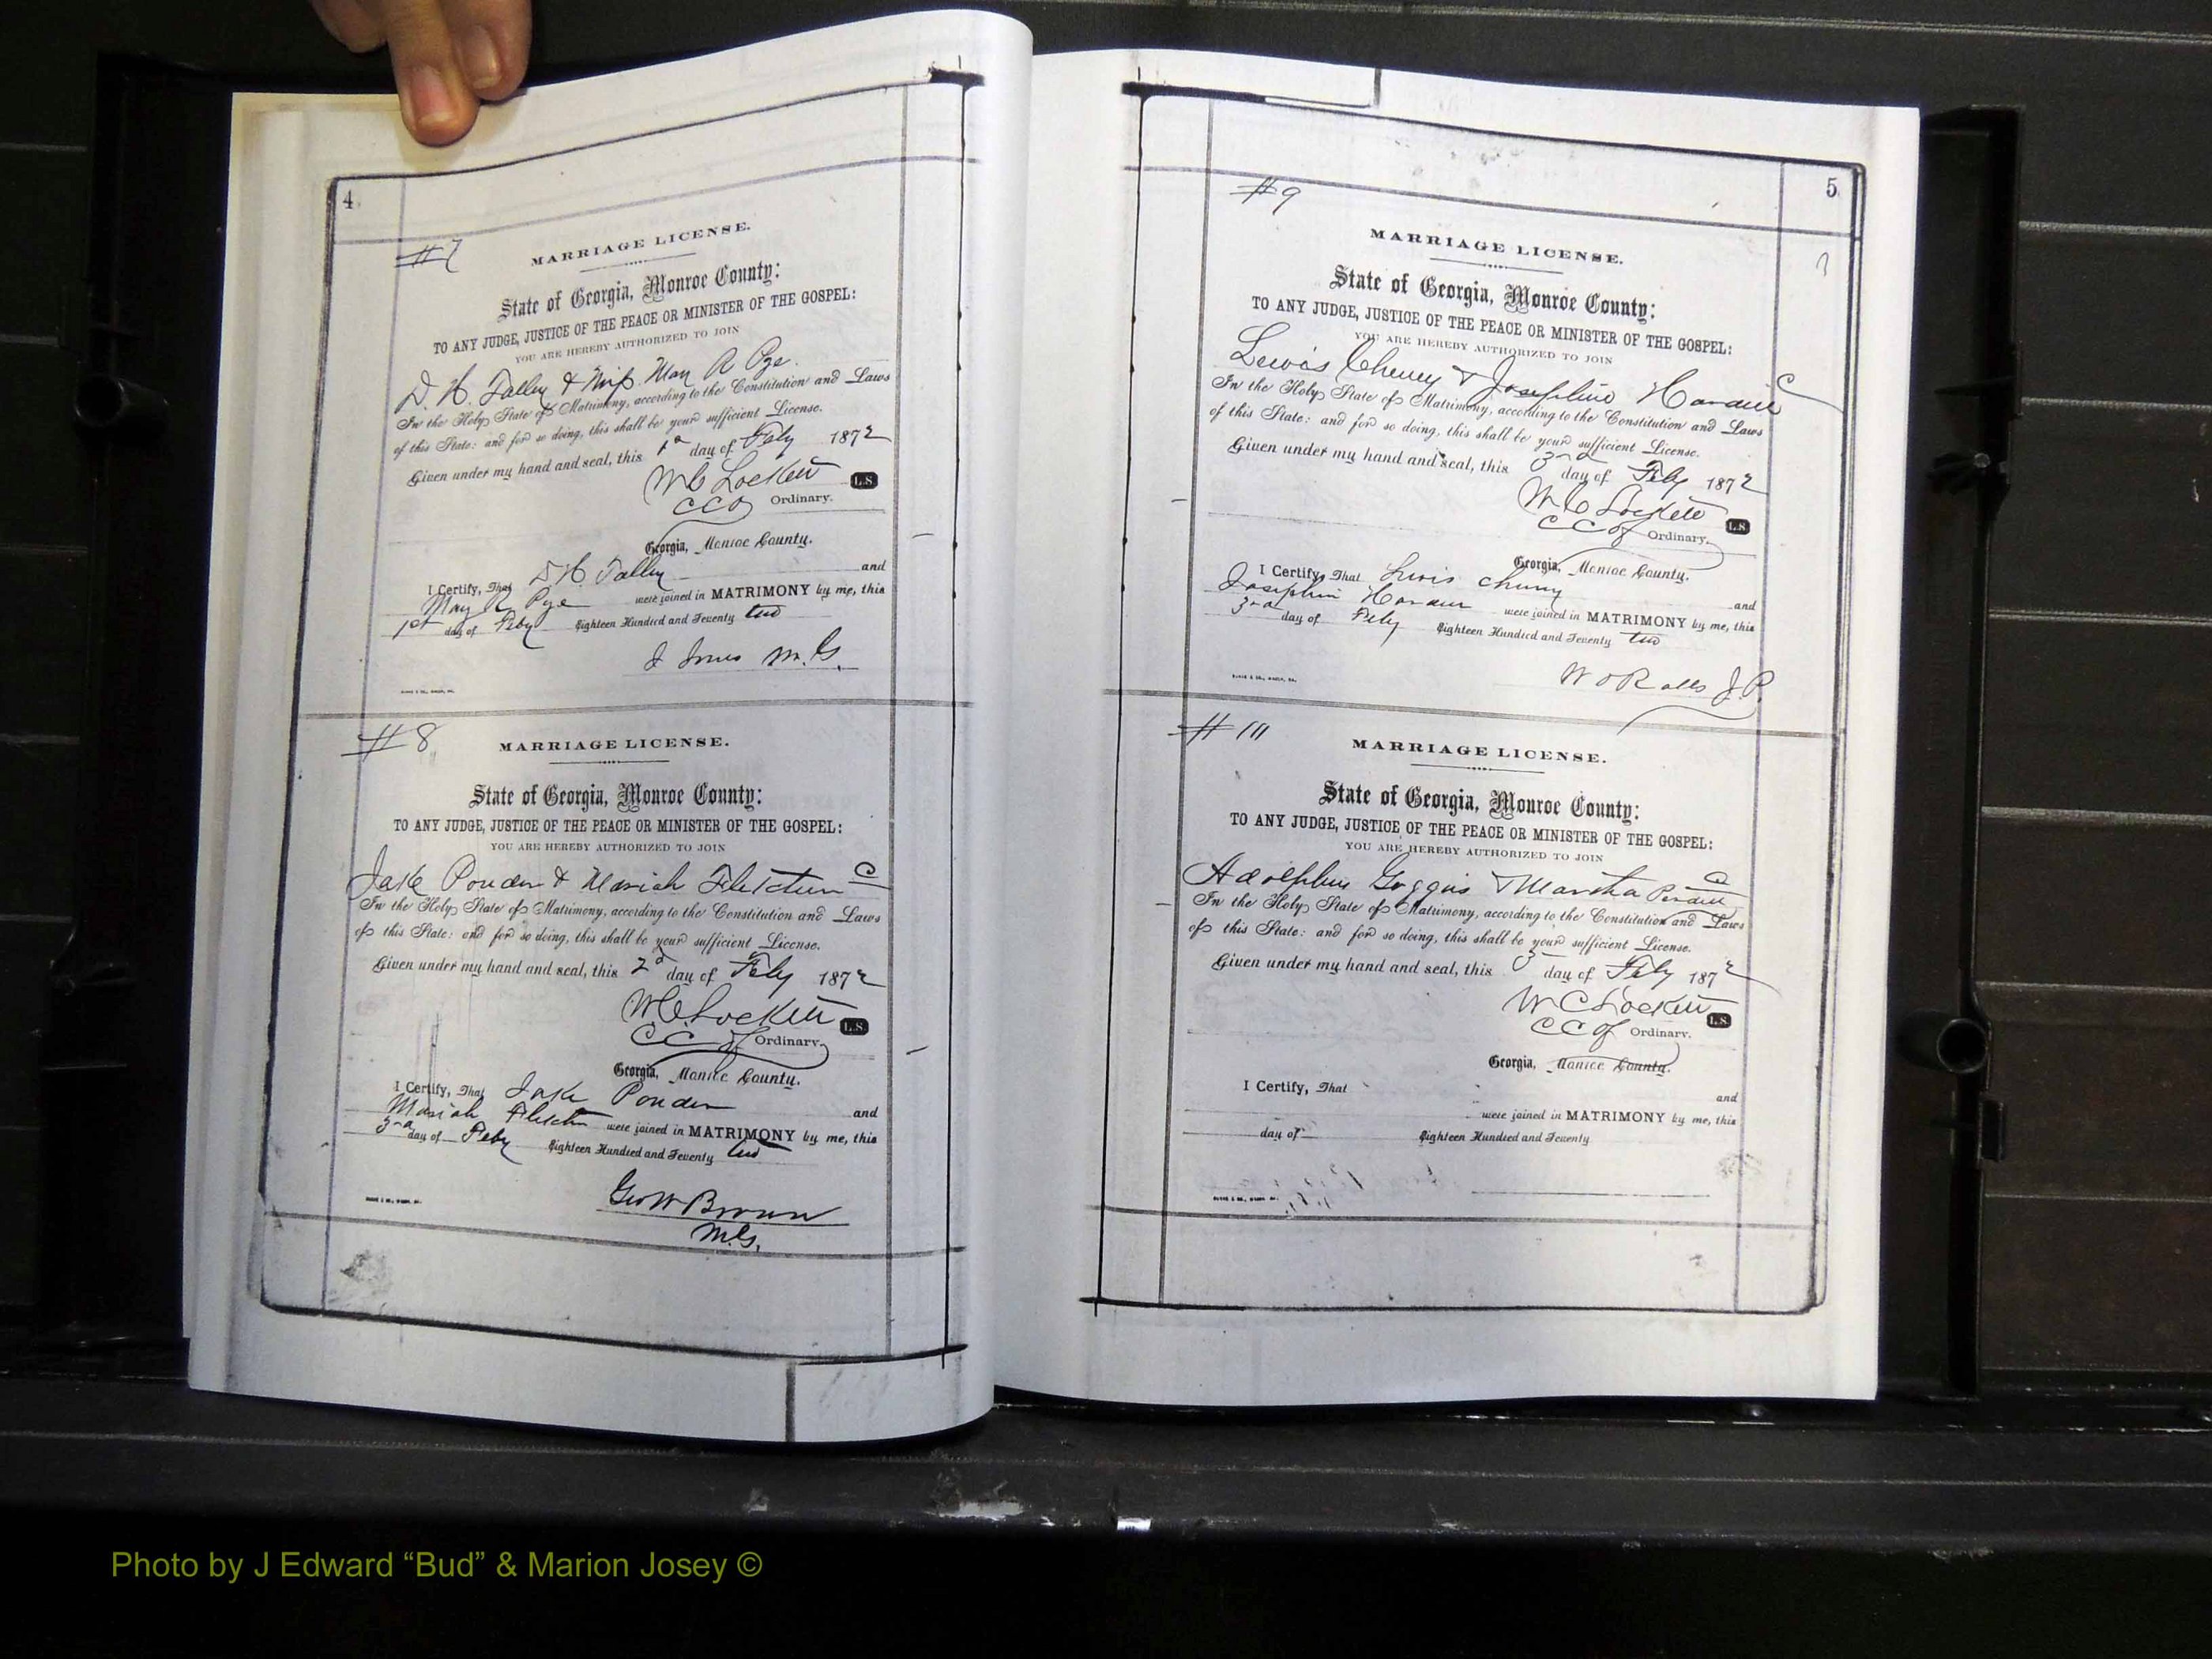 4
#7
MARRIAGE LICENSE.
State of Georgia, Monroe County:
TO ANY JUDGE, JUSTICE OF THE PEACE OR MINISTER OF THE GOSPEL:
YOU ARE HEREBY AUTHORIZED TO JOIN
D. H. Talley & Miss. May R Pye.
In the Holy State of Matrimony, according to the Constitution and Laws
of this State: and for so doing, this shall be your sufficient License.
Given under my hand and seal, this 1st day of Feby 1872
W C Lockett L.S.
CCO Ordinary.
Georgia, Monroe County.
I Certify, That D H Talley and
May R Pye were joined in MATRIMONY by me, this
1st day of Feby Eighteen Hundred and Seventy two
M. G.
#8
MARRIAGE LICENSE.
State of Georgia, Monroe County:
TO ANY JUDGE, JUSTICE OF THE PEACE OR MINISTER OF THE GOSPEL:
YOU ARE HEREBY AUTHORIZED TO JOIN
Jake Ponder & Mariah Fletcher C
In the Holy State of Matrimony, according to the Constitution and Laws
of this State: and for so doing, this shall be your sufficient License.
Given under my hand and seal, this 2d day of Feby 1872
W C Lockett L.S.
CC of Ordinary.
Georgia, Monroe County.
I Certify, That Jake Ponder and
Mariah Fletcher were joined in MATRIMONY by me, this
3rd day of Feby Eighteen Hundred and Seventy two
Geo W Brown
M.G.
5
#9
MARRIAGE LICENSE.
State of Georgia, Monroe County:
TO ANY JUDGE, JUSTICE OF THE PEACE OR MINISTER OF THE GOSPEL:
YOU ARE HEREBY AUTHORIZED TO JOIN
Lewis Cheney & Josephine C
In the Holy State of Matrimony, according to the Constitution and Laws
of this State: and for so doing, this shall be your sufficient License.
Given under my hand and seal, this 3rd day of Feby 1872
W C Lockett L.S.
CC of Ordinary.
Georgia, Monroe County.
I Certify, That Lewis Cheney and
Josephine were joined in MATRIMONY by me, this
3rd day of Feby Eighteen Hundred and Seventy two
W O Ralls J.P.
#10
MARRIAGE LICENSE.
State of Georgia, Monroe County:
TO ANY JUDGE, JUSTICE OF THE PEACE OR MINISTER OF THE GOSPEL:
YOU ARE HEREBY AUTHORIZED TO JOIN
Adolphus Goggins & Martha C
In the Holy State of Matrimony, according to the Constitution and Laws
of this State: and for so doing, this shall be your sufficient License.
Given under my hand and seal, this day of Feby 1872
W C Lockett L.S.
CC of Ordinary.
Georgia, Monroe County.
I Certify, That and
were joined in MATRIMONY by me, this
day of Eighteen Hundred and Seventy
Photo by J Edward “Bud” & Marion Josey ©